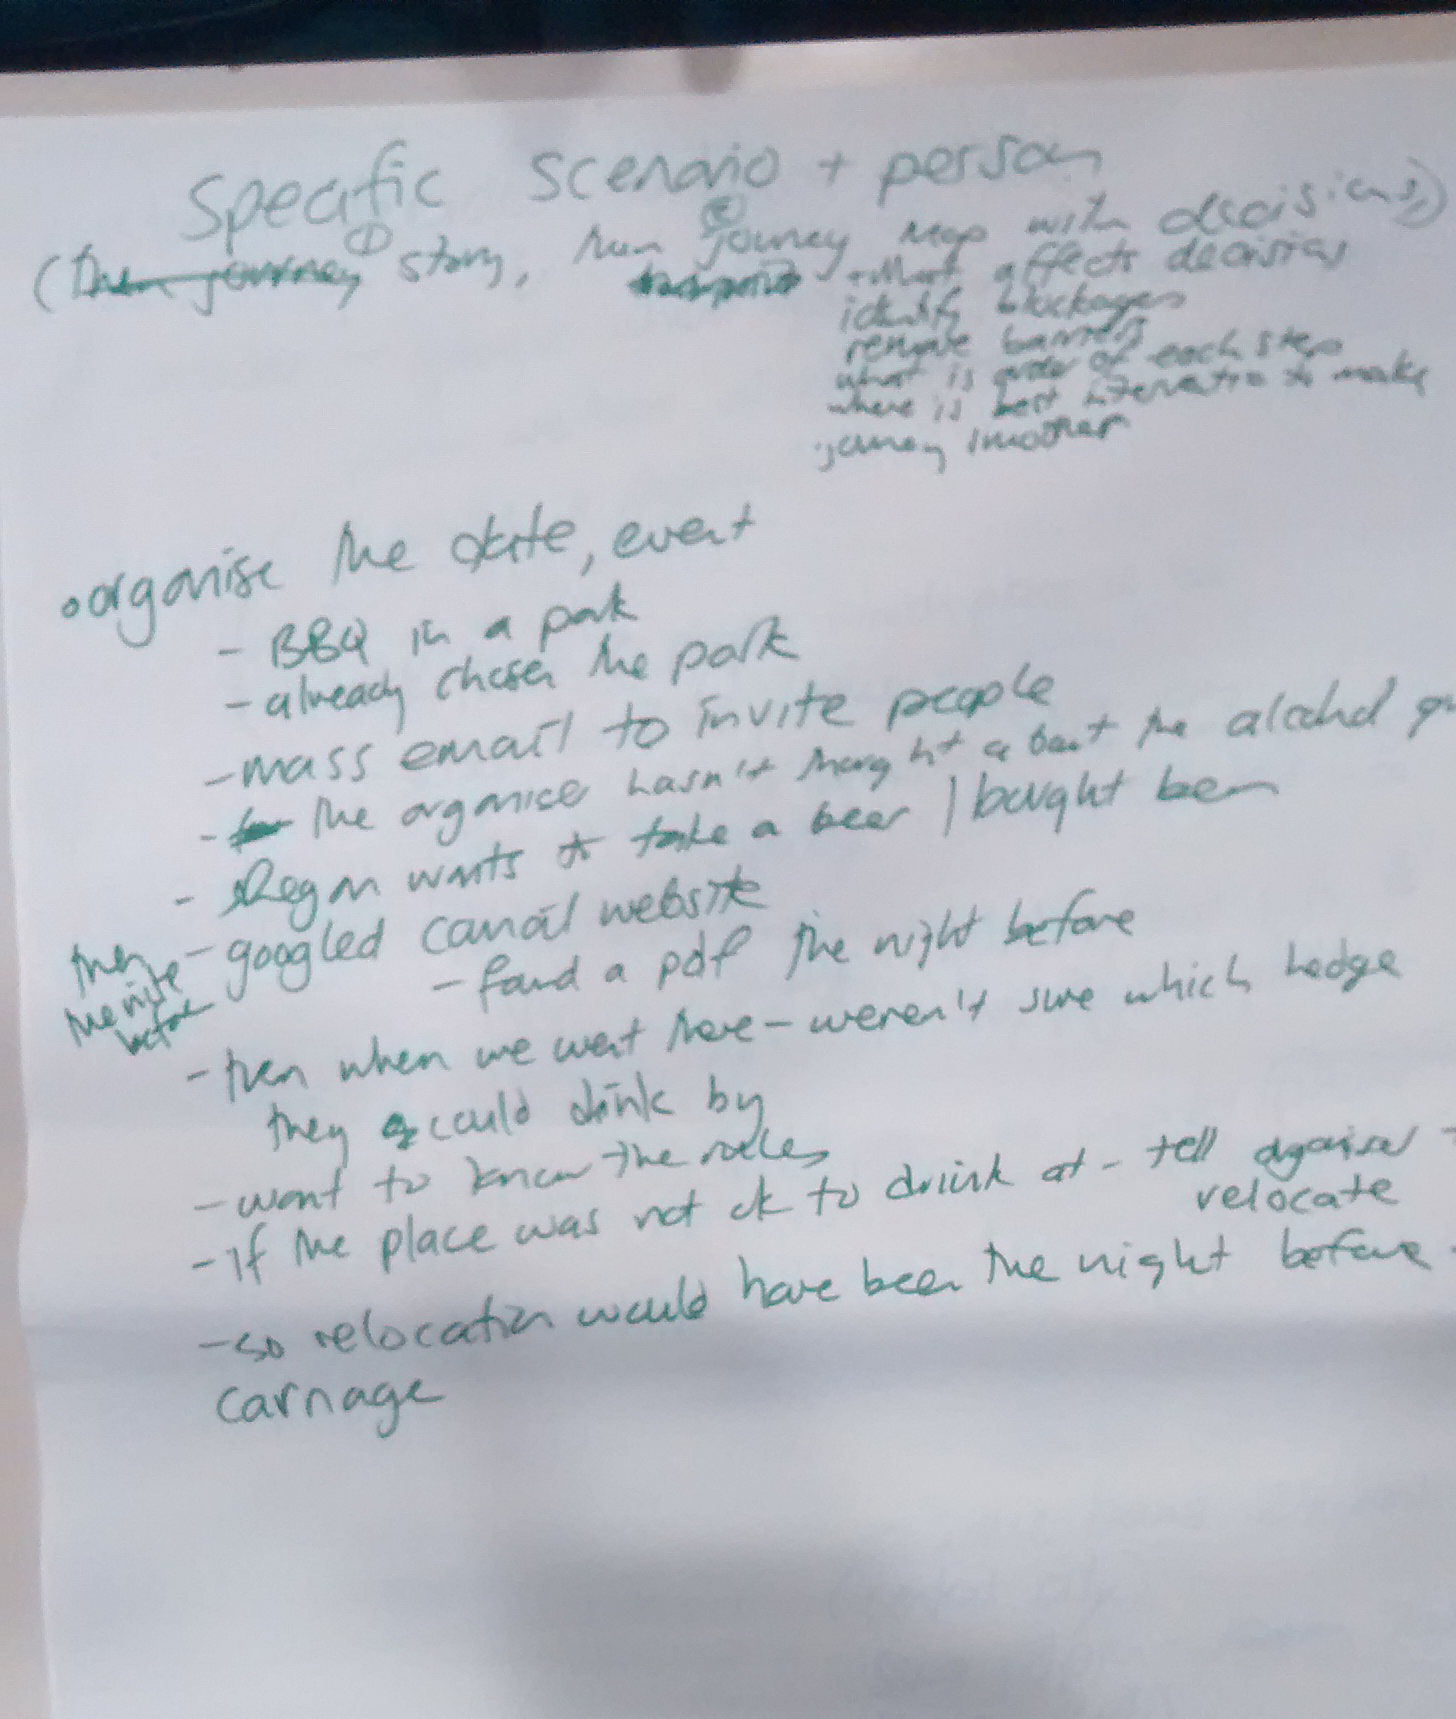 Specific scenario + person
(then journey ① story, then ② journey map with decisions)
+ what affects decisions
identify blockages
remove barriers
what is order of each step
where is best intervention to make
journey smoother
• organise the date, event
- BBQ in a park
- already chosen the park
- mass email to invite people
- the organiser hasn't thought about the alcohol
- Regan wants to take a beer / bought beer
then the nite before
- googled council website
- found a pdf the night before
- then when we went there - weren't sure which hedge
they could drink by
- want to know the rules
- if the place was not ok to drink at - tell organiser
relocate
- so relocation would have been the night before
carnage